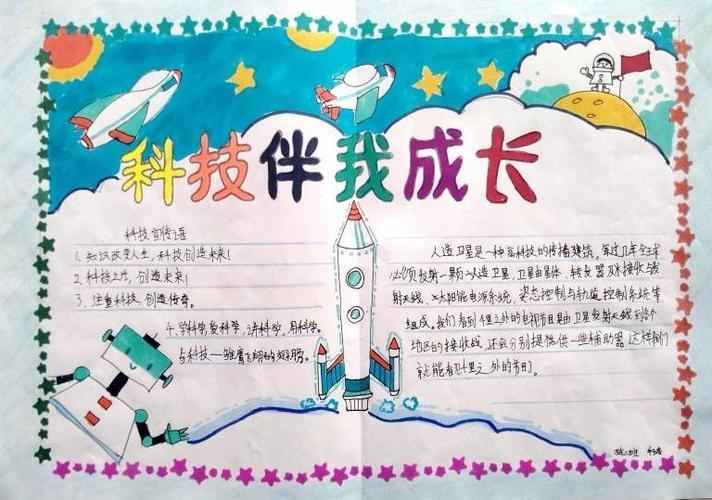 科技伴我成长
科技宣传语
1、知识改变人生，科技创造未来！
2、科技之光，创造未来！
3、注重科技，创造传奇。
4、学科学，爱科学，讲科学，用科学。
与科技一
人造卫星是一种高科技的传播建筑，每过几年全球
必须发射一颗人造卫星，卫星由星体、转发器及接收与发
射天线、太阳能电源系统、姿态控制与轨道控制系统等
组成。我们看到千里之外的电视节目是由卫星发射天线到各个
地区的接收站，还会分别提供一些辅助器，这样我们
就能看到千里之外的节目。